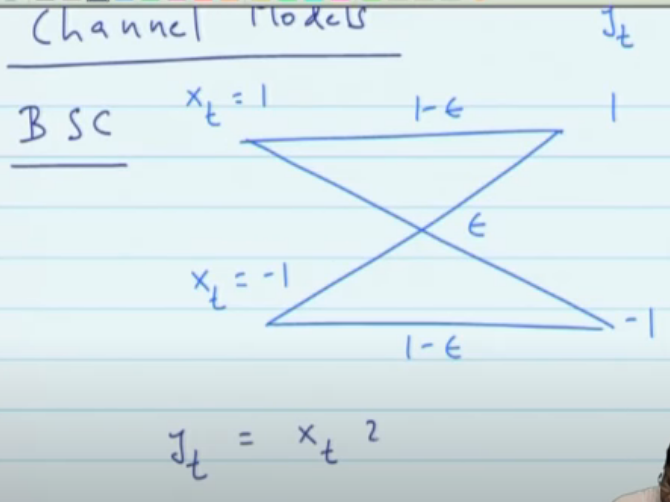 Channel Models
y_t
x_t = 1
1-ϵ
1
BSC
ϵ
x_t = -1
-1
1-ϵ
y_t = x_t z